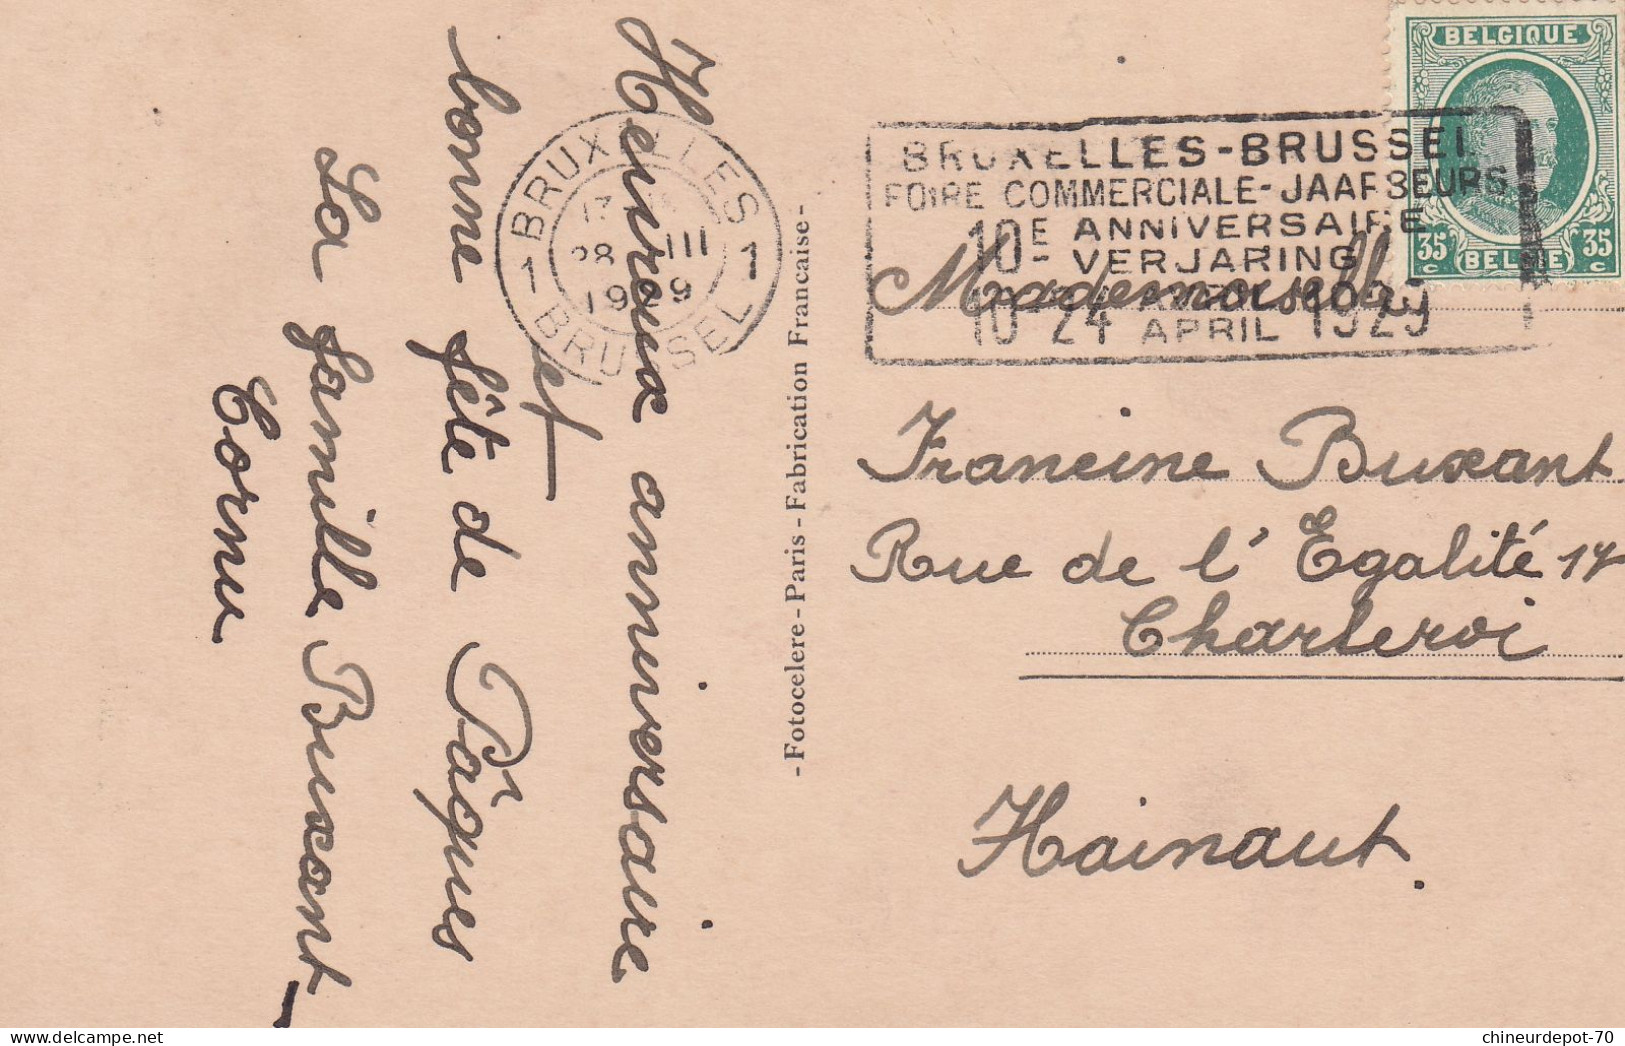 Heureux anniversaire
et
bonne fête de Pâques
La famille Buxant-
Cornu
BRUXELLES
1 1
28 III
BRUSSEL
- Fotocelere - Paris - Fabrication Francaise -
BELGIQUE
35 c 35 c
BELGIE
BRUXELLES-BRUSSEL
FOIRE COMMERCIALE-JAARBEURS
10E ANNIVERSAIRE
VERJARING
10-24 AVRIL 1929
APRIL
Mademoiselle
Francine Buxant
Rue de l'Egalité 17
Charleroi
Hainaut.
chineurdepot-70